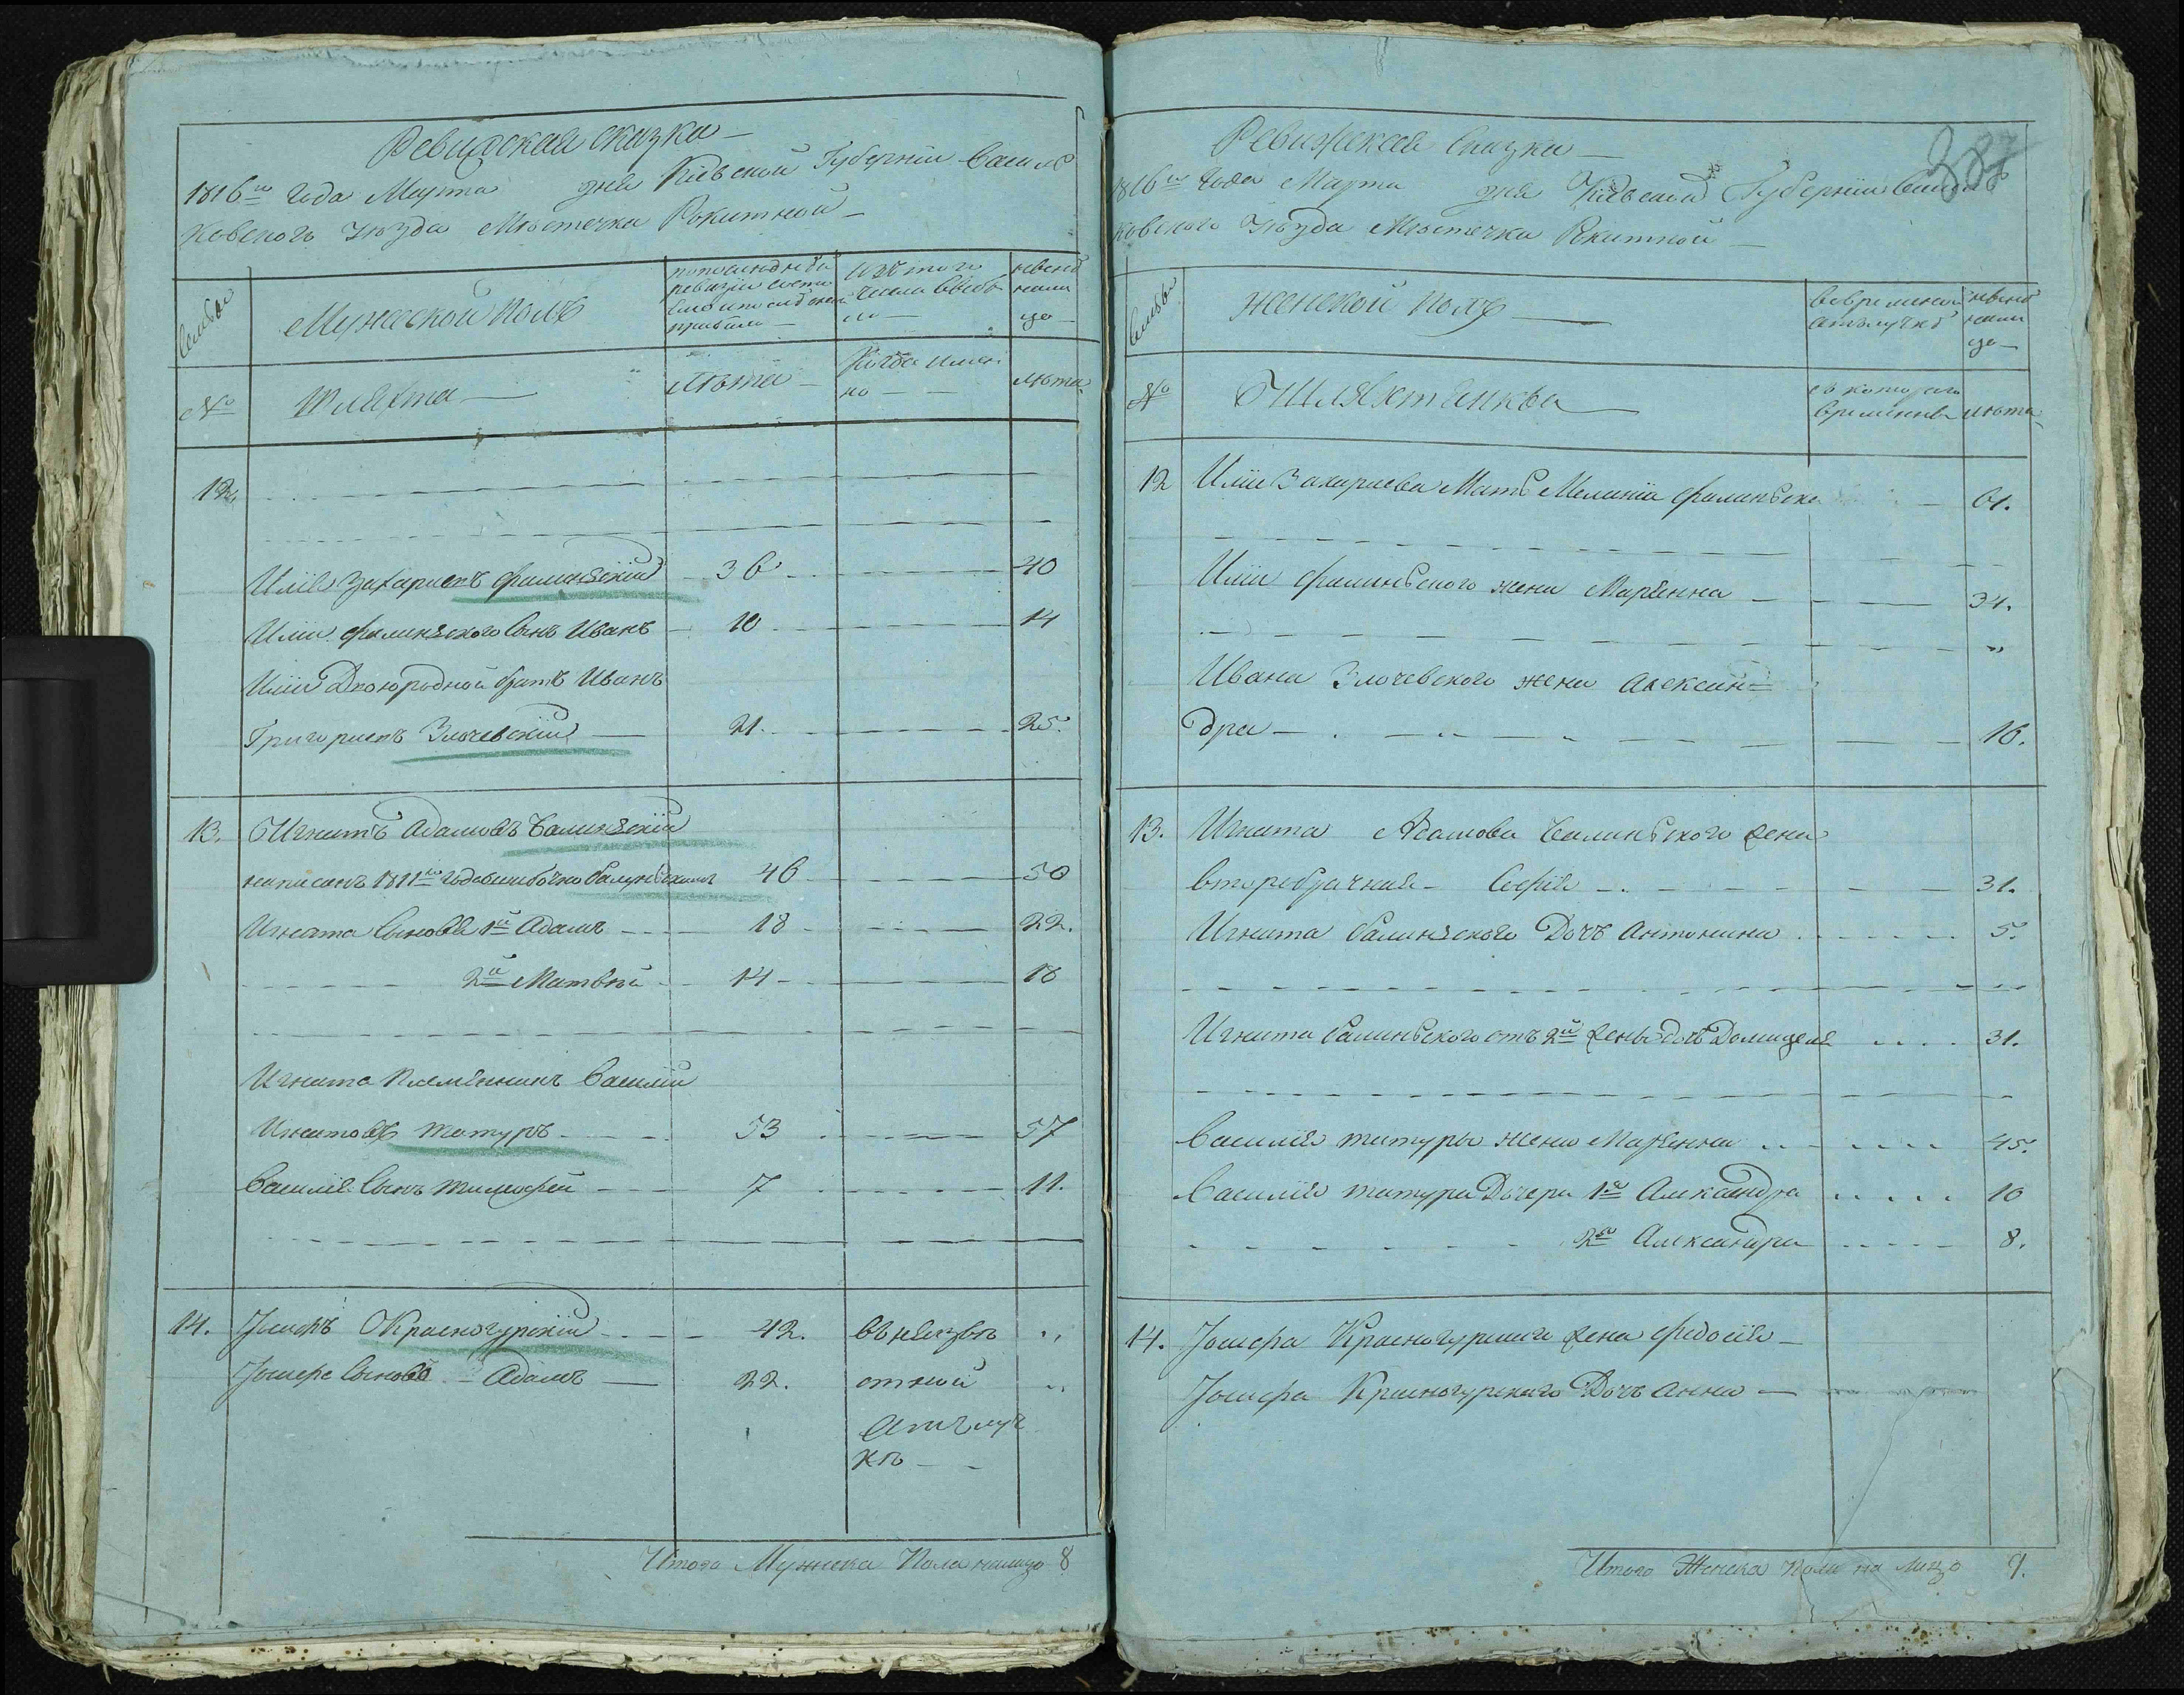 Ревижская сказка
1816го года Марта дня Кіевской Губерніи Василь
ковского уѣзда Мѣстечка Рокитной
семьи
Мужеской полъ
по последней ревизіи состояло и после оной прибыло
изъ того числа выбыло
ныне на лицо
№
Шляхта
лѣта
Когда имен
но
лѣта
12.
Илія Захариевъ Филинскій 36 40
Иліи Филинского сынъ Иванъ 10 14
Иліи Двоюродной братъ Иванъ
Григориевъ Злочевскій 21. 25.
13. Игнатъ Адамовъ Балинскій
написанъ 1811го года ошибочно Балунскимъ 46 50
Игната сыновя 1й Адамъ 18 22.
2й Матвѣй 14 18
Игната племянникъ Василій
Игнатовъ Татуръ 53 57
Василія сынъ Тимофей 7 11.
14. Јосифъ Красногурскій 42. въ неизвѣ „
Јосифа сыновя Адамъ 22. стной „
отлуч
кѣ
Итого Мужеска Пола налицо 8
387
Ревижская Сказка
1816го Года Марта дня Кіевской Губерніи Василь
ковского Уѣзда Мѣстечка Рокитной
семьи
Женской полъ
во временной отлучкѣ
ныне на лицо
№
Шляхтянки
съ которого времени
лѣта
12 Иліи Захариева Мать Меланія Филинска 61.
Иліи Филинского жена Марянна 34.
„
Ивана Злочевского жена Алексан=
дра 16.
13. Игната Адамова Балинского жена
второбрачная Софія 31.
Игната Балинского Дочь Антонина 5.
Игната Балинского отъ 2й жены дочь Домицеля 31.
Василія татуры жена Марянна 45.
Василія татура Дочери 1я Александра 10
2я Александра 8.
14. Јосифа Красногурскаго жена Федосія
Јосифа Красногурскаго Дочь Анна
Итого Женска Пола на лицо 9.